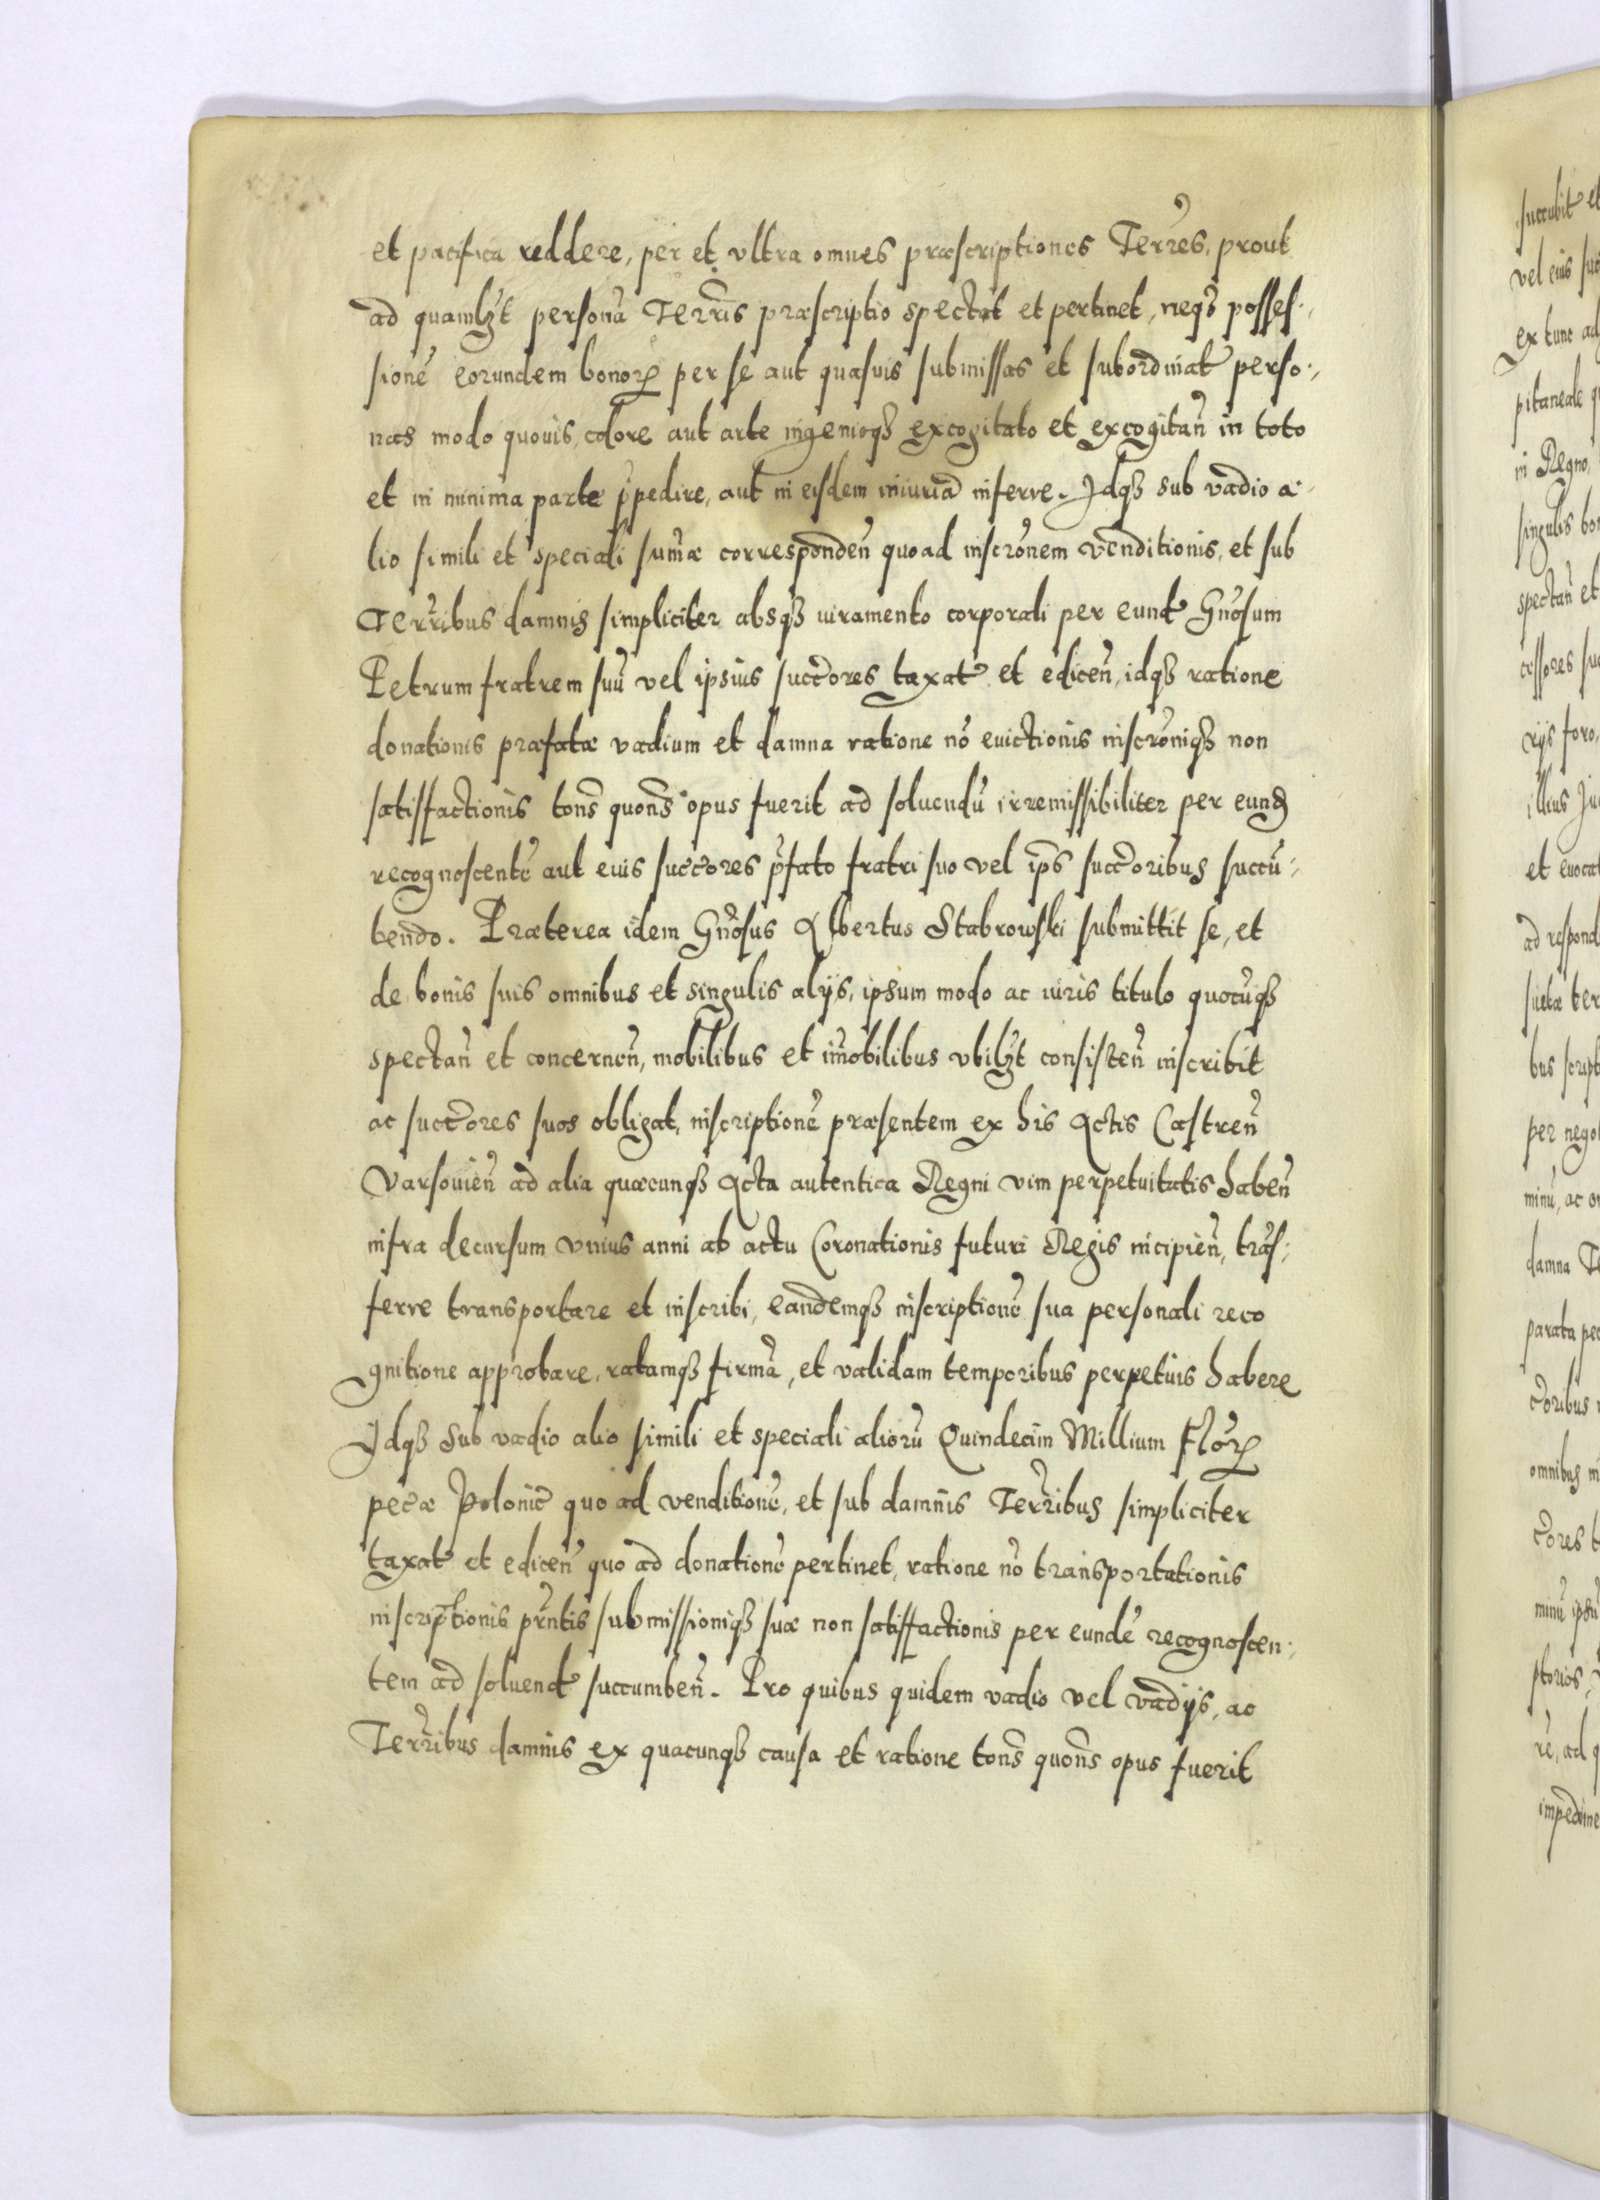 et pacifica reddere, per et ultra omnes præscriptiones Terr̃es, prout
ad quamlȝt personã Terr̃ris præscriptio spectat et pertinet, neqȝ posses-
sionẽ eorundem bonorꝝ per se aut quasuis submissas et subordinat perso-
nas modo quouis, colore aut arte ingenioqȝ excogitato et excogitañ in toto
et in minima parte p̃pedire, aut in eisdem iniuriã inferre. Idqȝ sub vadio a-
lio simili et speciali sum̃æ correspondeñ quoad inscrõnem venditionis, et sub
Terr̃ribus damnis simpliciter absqȝ iuramento corporali per eund Gñosum
Petrum fratrem suũ vel ipsius succ̃ores taxat et ediceñ, idqȝ ratione
donationis præfatæ vadium et damna ratione nõ euictionis inscrõniqȝ non
satisfactionis tõns quõns opus fuerit ad soluendũ irremissibiliter per eund
recognoscentẽ aut eius succ̃ores p̃fato fratri suo vel ip̃s succ̃oribus succũ-
bendo. Præterea idem Gñosus Albertus Stabrowski submittit se, et
de bonis suis omnibus et singulis alijs, ipsum modo ac iuris titulo quocũqȝ
spectañ et concerneñ, mobilibus et im̃obilibus vbilȝt consisteñ inscribit
ac succ̃ores suos obligat, inscriptionẽ præsentem ex his Actis Castreñ
Varsouieñ ad alia quæcunqȝ Acta autentica Regni vim perpetuitatis habeñ
infra decursum vnius anni ab actu Coronationis futuri Regis incipieñ, trãs-
ferre transportare et inscribi, eandemqȝ inscriptionẽ sua personali reco
gnitione approbare, ratamqȝ firmã, et validam temporibus perpetuis habere
Idqȝ sub vadio alio simili et speciali aliorũ Quindecim Millium Flor̃ꝝ
pec̃æ Polonic̃ quo ad venditionẽ, et sub damnis Terr̃ribus simpliciter
taxat et ediceñ quo ad donationẽ pertinet, ratione nõ transportationis
inscriptionis pr̃ntis submissioniqȝ suæ non satisfactionis per eundẽ recognoscen-
tem ad soluend succumbeñ. Pro quibus quidem vadio vel vadijs, ac
Terr̃ribus damnis ex quacunqȝ causa et ratione tõns quõns opus fuerit